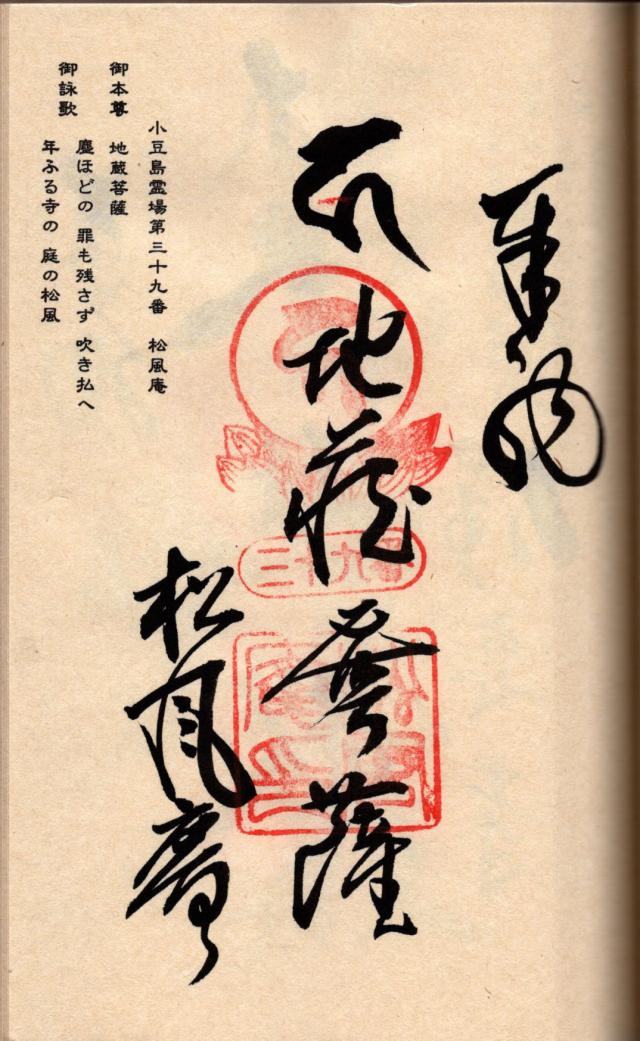 奉納
地蔵菩薩
松風庵
小豆島霊場第三十九番 松風庵
御本尊 地蔵菩薩
御詠歌
塵ほどの 罪も残さず 吹き払へ
年ふる寺の 庭の松風